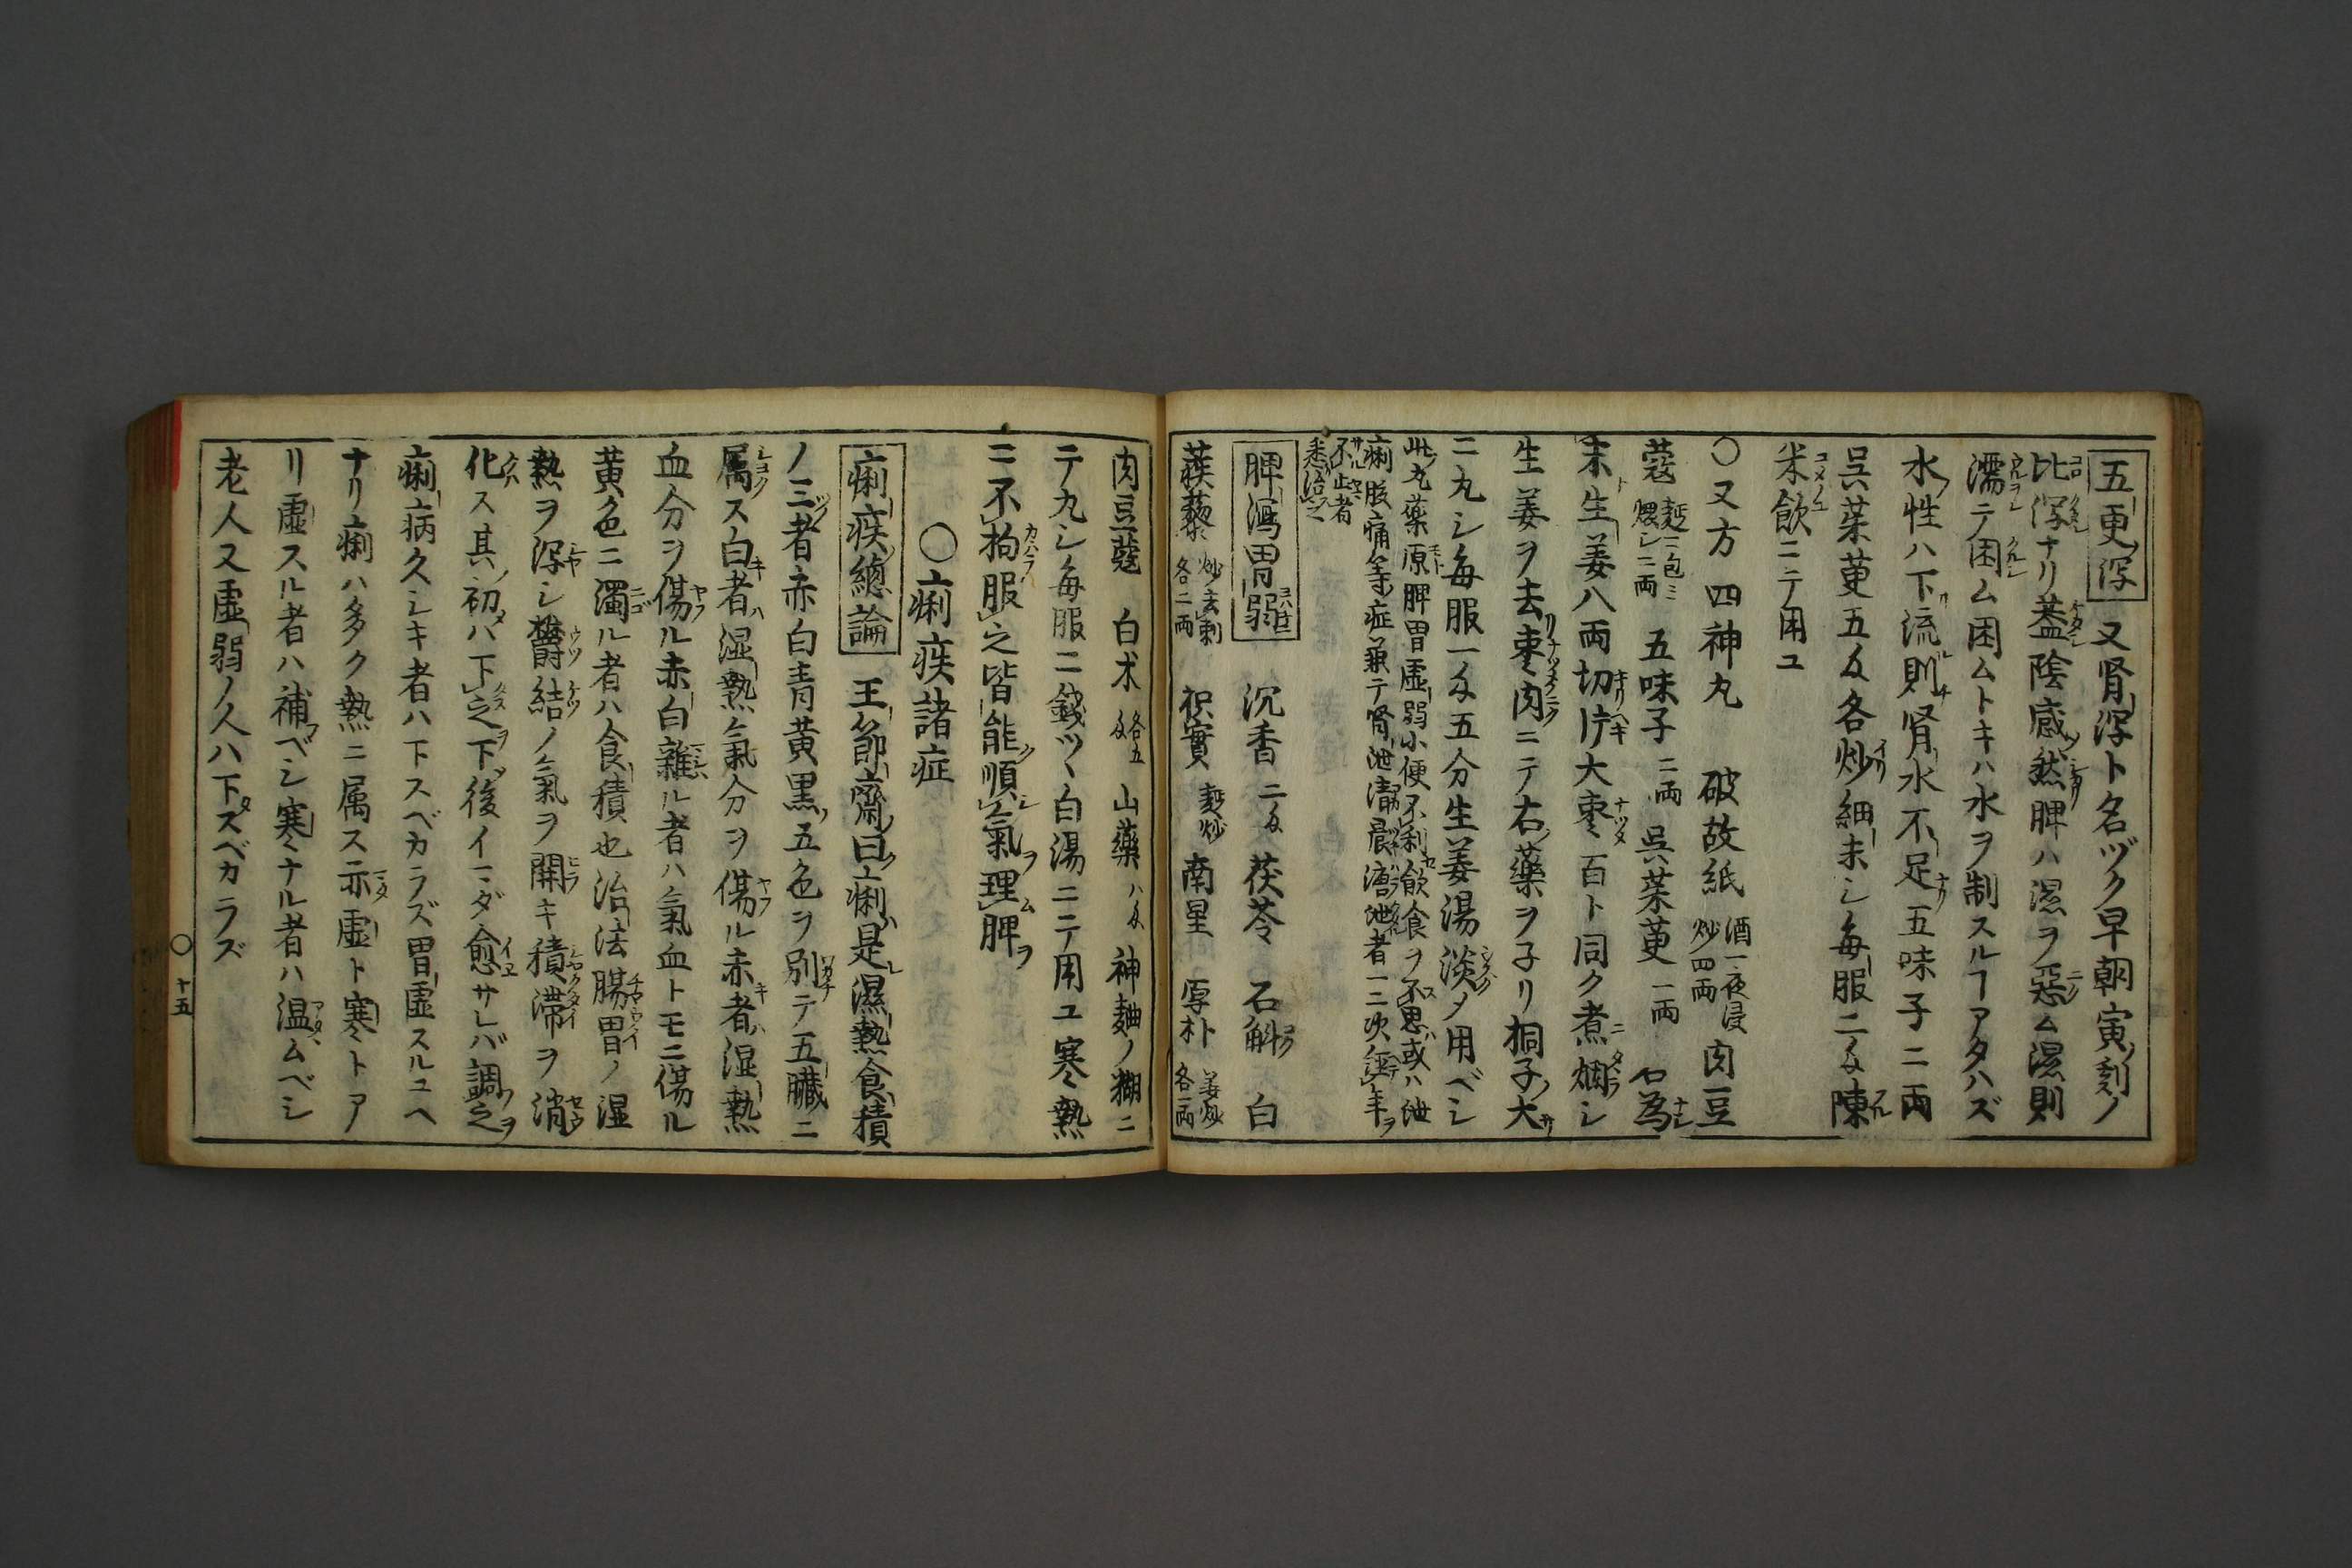 五更瀉 又腎瀉ト名ヅク早朝寅ノ刻ノ
比瀉ナリ蓋陰感然脾ハ濕ヲ惡ム濕則
濡テ困ム困ムトキハ水ヲ制スルヿアタハズ
水性ハ下流則腎水不足五味子二兩
呉茱萸五匁各炒細末シ毎服二匁陳
米飲ニテ用ユ
○又方 四神丸 破故紙 酒一夜浸炒四兩 肉豆
蔻 麪ニ包ミ煨シ二兩 五味子 二兩 呉茱萸 一兩 右爲
末生姜八兩切片大棗百ト同ク煮爛シ
生姜ヲ去棗肉ニテ右藥ヲ子リ桐子ノ大サ
ニ丸シ毎服一匁五分生姜湯淡メ用ベシ
此丸藥原脾胃虚弱小便不利飲食ヲ不思或ハ泄
痢腹痛等ノ症兼テ腎泄清晨溏泄者一二次經年ヲ
不止者
悉治之
脾瀉胃弱 沉香 二匁 茯苓 石斛 白
蒺藜 炒去刺各二兩 枳實 麸炒 南星 厚朴 姜炒各一兩
肉豆蔻 白朮 各五匁 山藥 八匁 神麯ノ糊ニ
テ丸シ毎服二錢ツヽ白湯ニテ用ユ寒熱
ニ不拘服之皆能順氣理脾ヲ
○痢疾諸症
痢疾總論 王節齋曰痢ハ是濕熱食積
ノ三者赤白青黄黒ノ五色ヲ別テ五臓ニ
属ス白者ハ湿熱氣分ヲ傷ル赤者ハ湿熱
血分ヲ傷ル赤白雜ル者ハ氣血トモニ傷ル
黄色ニ濁ル者ハ食積也治法腸胃ノ湿
熱ヲ瀉シ欝結ノ氣ヲ開キ積滞ヲ消
化ス其初ハ下之下後イマダ愈サレバ調之
痢病久シキ者ハ下スベカラズ胃虚スルユヘ
ナリ痢ハ多ク熱ニ属ス亦虚ト寒トア
リ虚スル者ハ補ベシ寒ナル者ハ温ムベシ
老人又虚弱ノ人ハ下スベカラズ
○ 十五